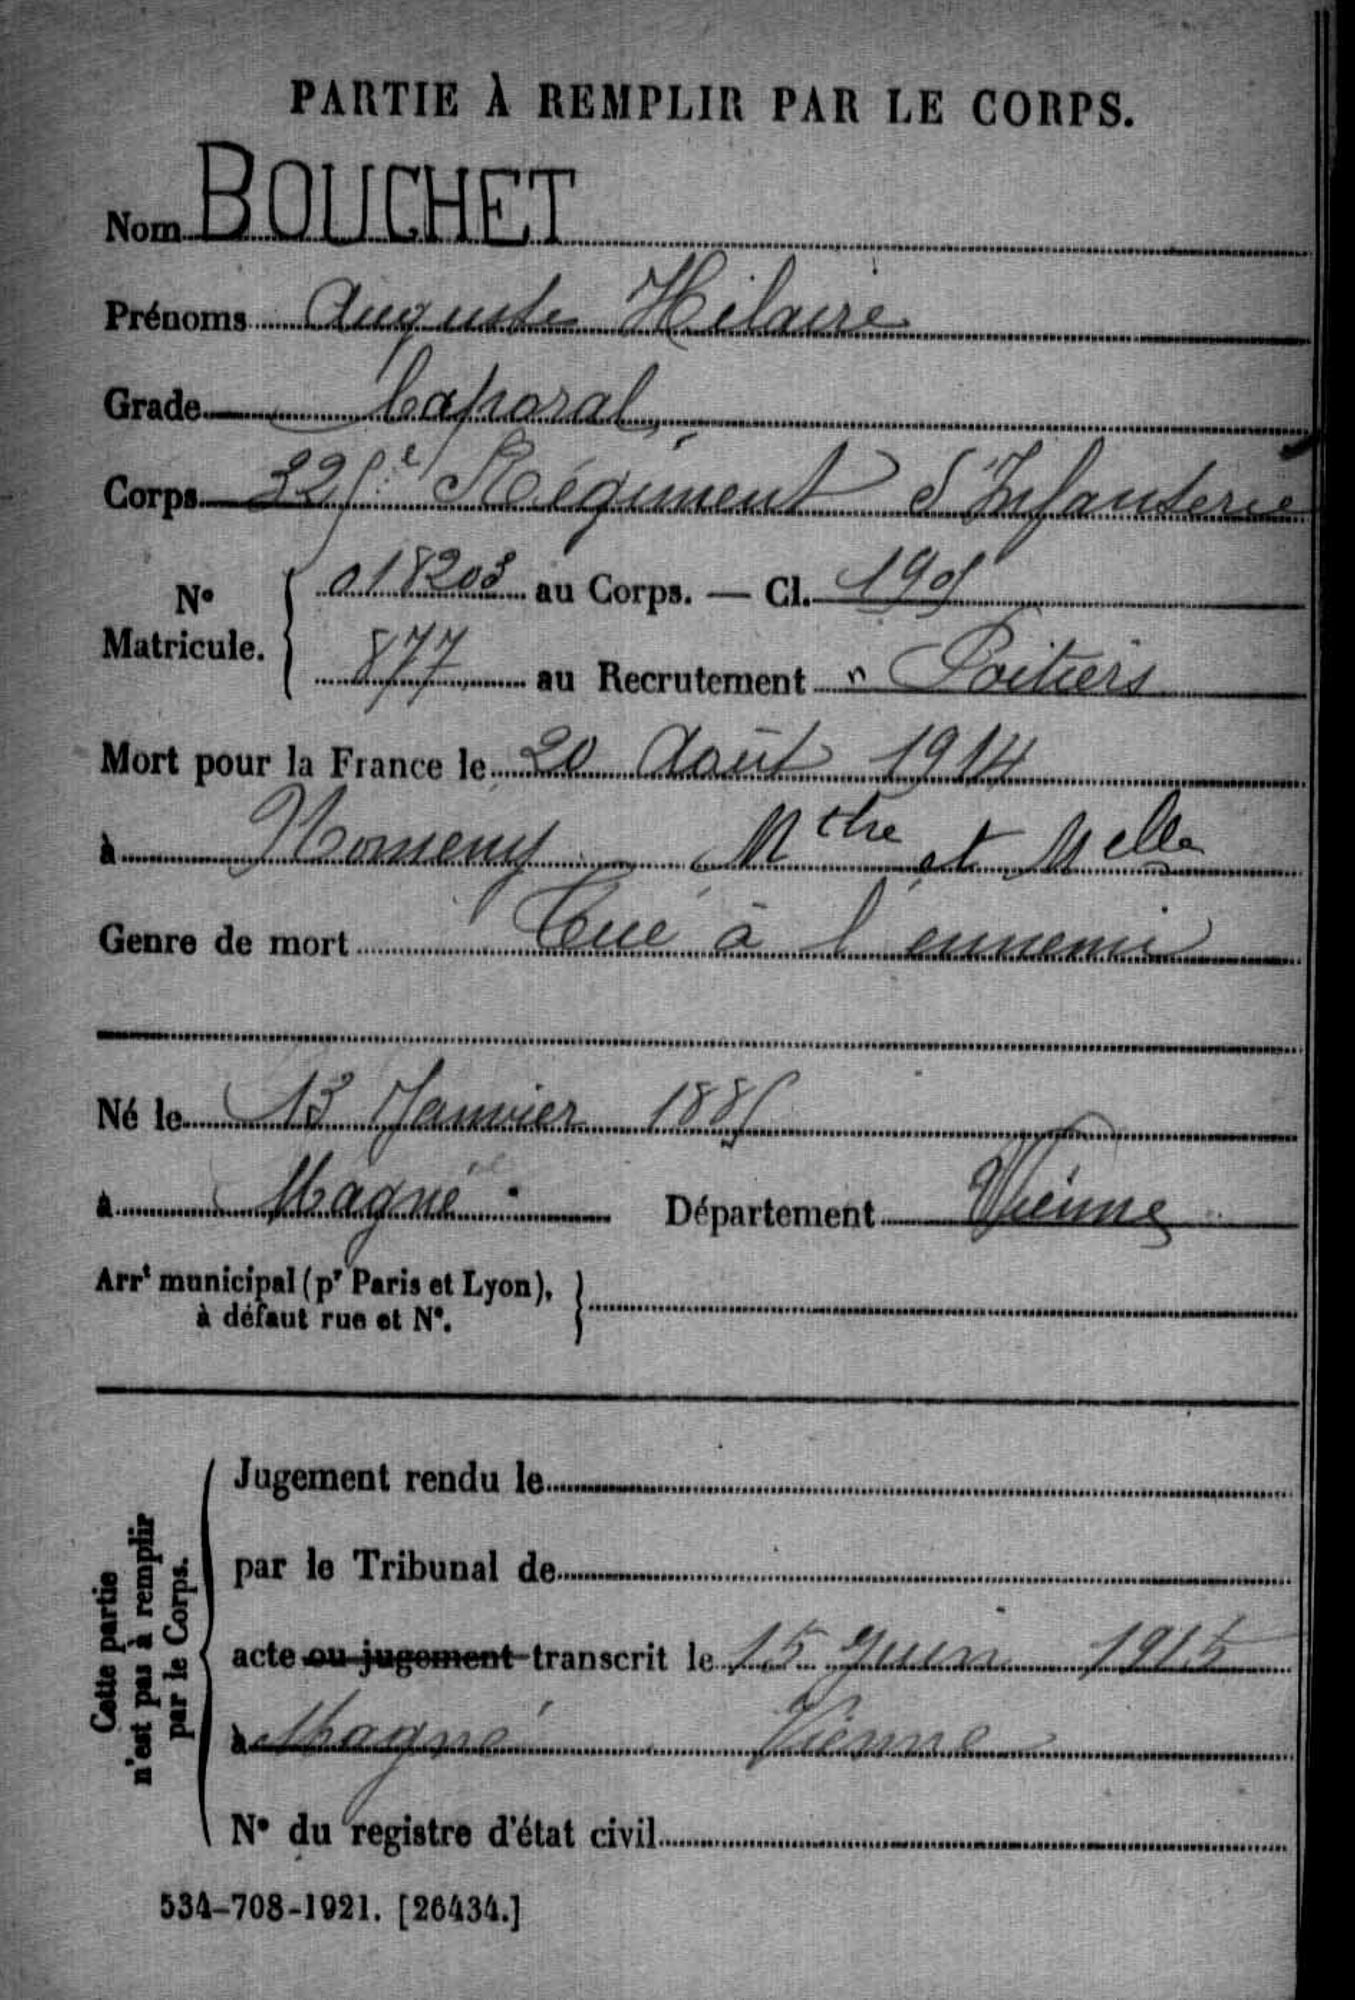 PARTIE À REMPLIR PAR LE CORPS.
Nom BOUCHET
Prénoms Auguste Hilaire
Grade Caporal
Corps 325e Régiment d'Infanterie
No Matricule. 018203 au Corps. — Cl. 1905
877 au Recrutement " Poitiers
Mort pour la France le 20 Août 1914
à Nomeny Mthe et Melle
Genre de mort Tué à l'ennemi
Né le 13 Janvier 1885
à Magné Département Vienne
Arrt municipal (pr Paris et Lyon),
à défaut rue et N°.
Cette partie
n'est pas à remplir
par le Corps.
Jugement rendu le
par le Tribunal de
acte ou jugement transcrit le 15 Juin 1915
à Magné Vienne
N° du registre d'état civil
534-708-1921. [26434.]